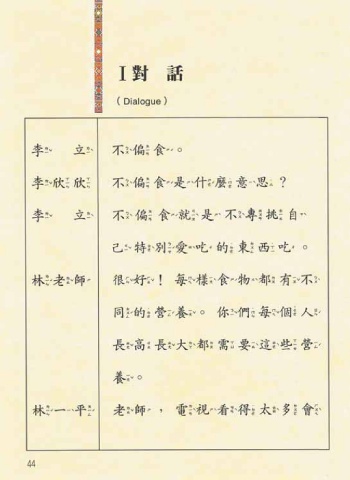 I 對 話
( Dialogue )
李 立 不偏食。
李欣欣 不偏食是什麼意思？
李 立 不偏食就是不專挑自
己特別愛吃的東西吃。
林老師 很好！每樣食物都有不
同的營養。你們每個人
長高長大都需要這些營
養。
林一平 老師，電視看得太多會
44